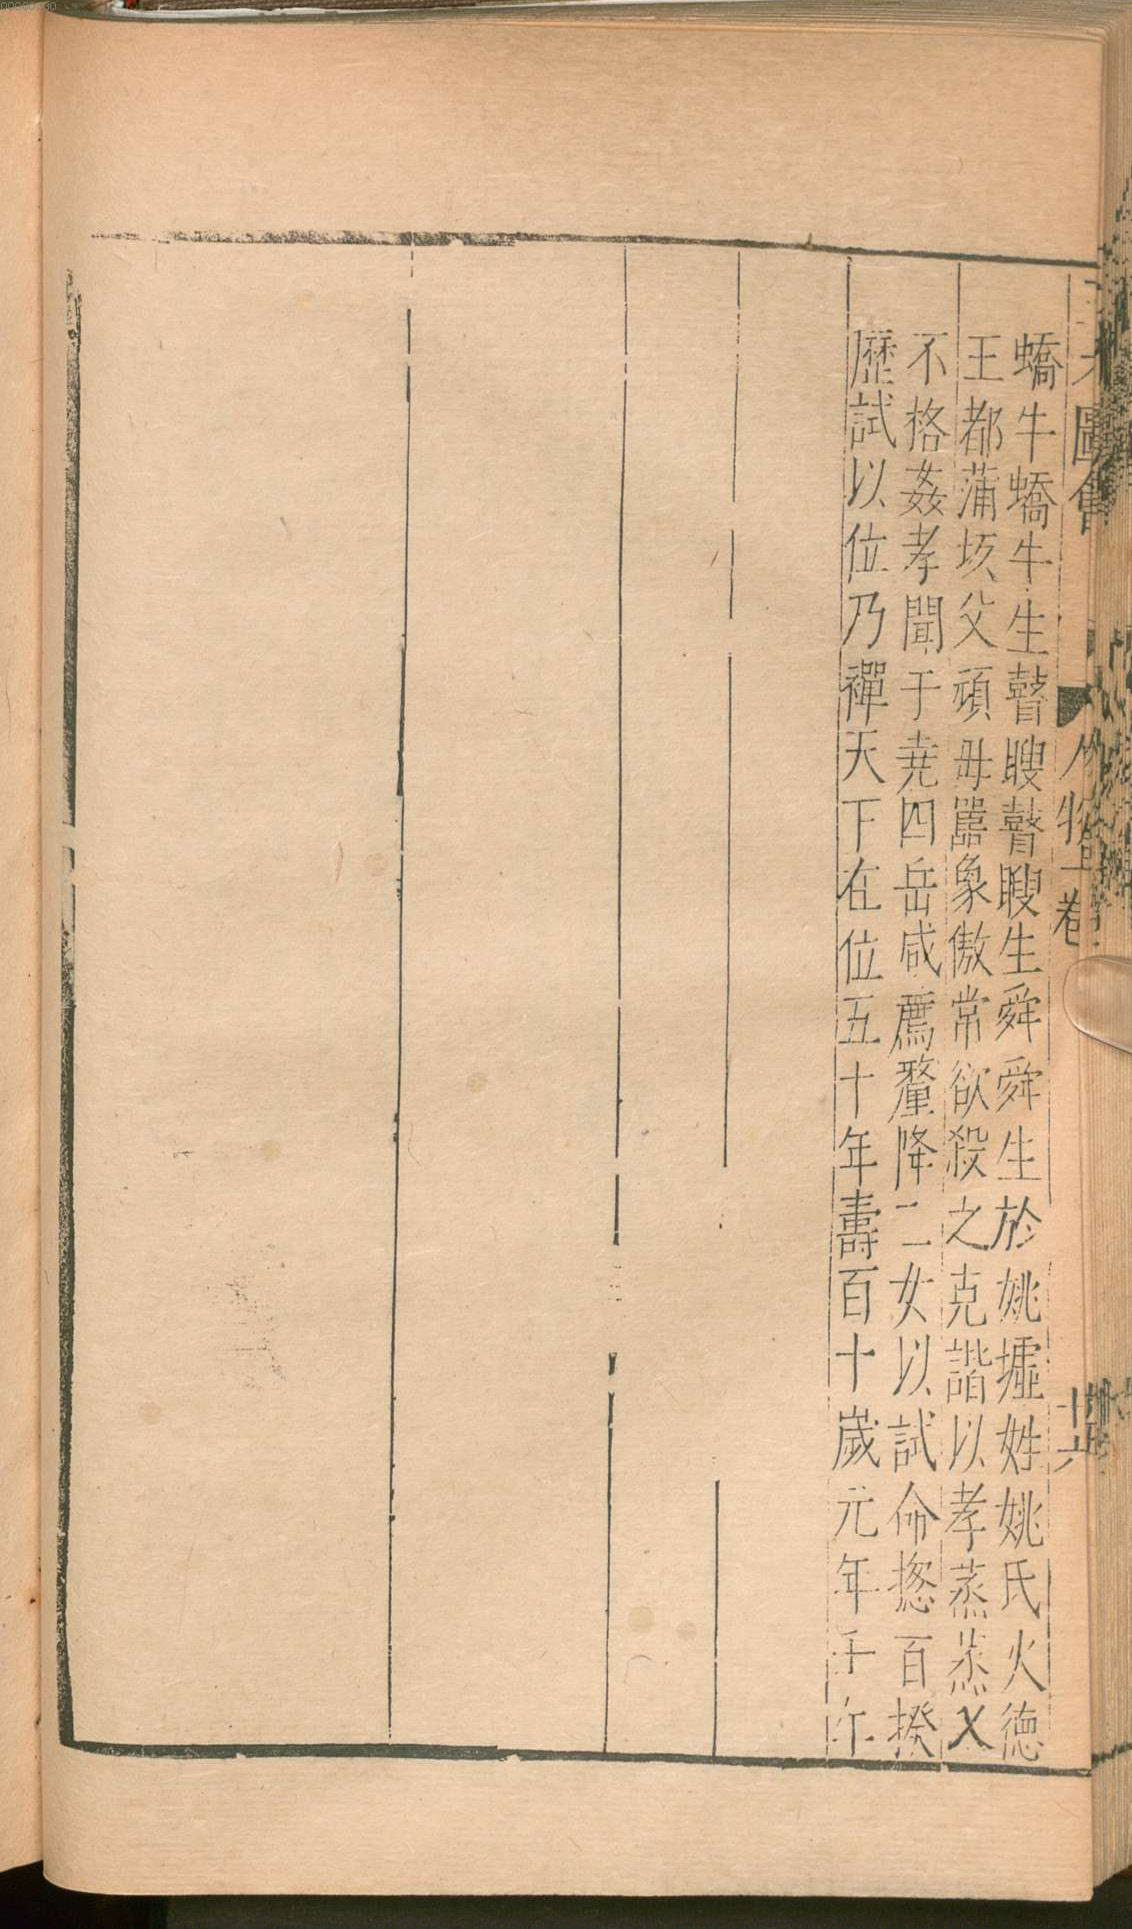 圖會 人物 卷 十六
蟜牛蟜牛生瞽瞍瞽瞍生舜舜生於姚墟姓姚氏火德
王都蒲坂父頑母嚚象傲常欲殺之克諧以孝蒸蒸乂
不格姦孝聞于堯四岳咸薦釐降二女以試命揔百揆
歷試以位乃禪天下在位五十年壽百十歲元年